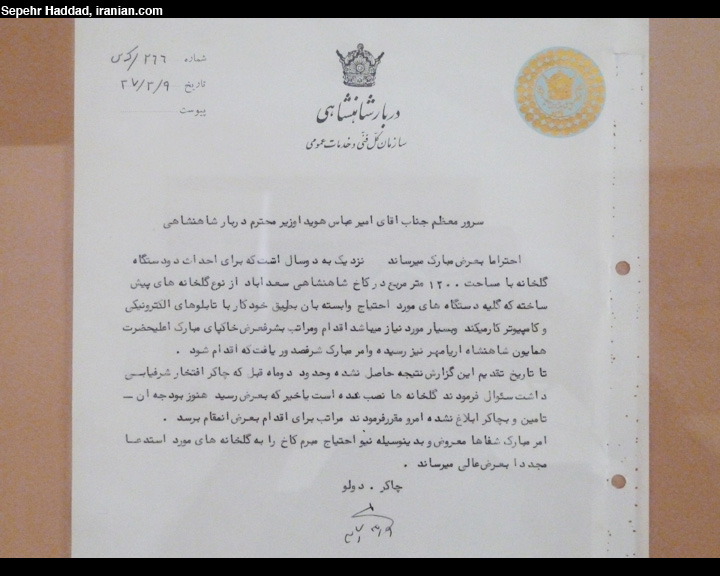 Sepehr Haddad, iranian.com
شماره ۲۶۶/
تاریخ ۳۷/۳/۹
پیوست
دربار شاهنشاهی
سازمان کل فنی و خدمات عمومی
سرور معظم جناب اقای امیر عباس هویدا وزیر محترم دربار شاهنشاهی
احتراما بعرض مبارک میرساند نزدیک به دو سال است که برای احداث دودستگاه
گلخانه با مساحت ۱۲۰۰ متر مربع در کاخ شاهنشاهی سعدآباد از نوع گلخانه های پیش
ساخته که کلیه دستگاه های مورد احتیاج وابسته بان بطریق خودکار با تابلوهای الکترونیکی
و کامپیوتر کارمیکند وبسیار مورد نیاز میباشد اقدام ومراتب بشرفعرض خاکپای مبارک اعلیحضرت
همایون شاهنشاه اریامهر نیز رسیده وامر مبارک شرفصدور یافت که اقدام شود .
تا تاریخ تقدیم این گزارش نتیجه حاصل نشده وحدود دوماه قبل که چاکر افتخار شرفیابی
داشت سئوال فرمودند گلخانه ها نصب شده است یاخیر که بعرض رسید هنوز بودجه ان ـ
تامین و بچاکر ابلاغ نشده امرو مقررفرمودند مراتب برای اقدام بعرض برسد .
امر مبارک شفاها معروض و بدینوسیله نیز احتیاج مبرم کاخ را به گلخانه های مورد استدعا
مجددا بعرض عالی میرساند .
چاکر . دولو